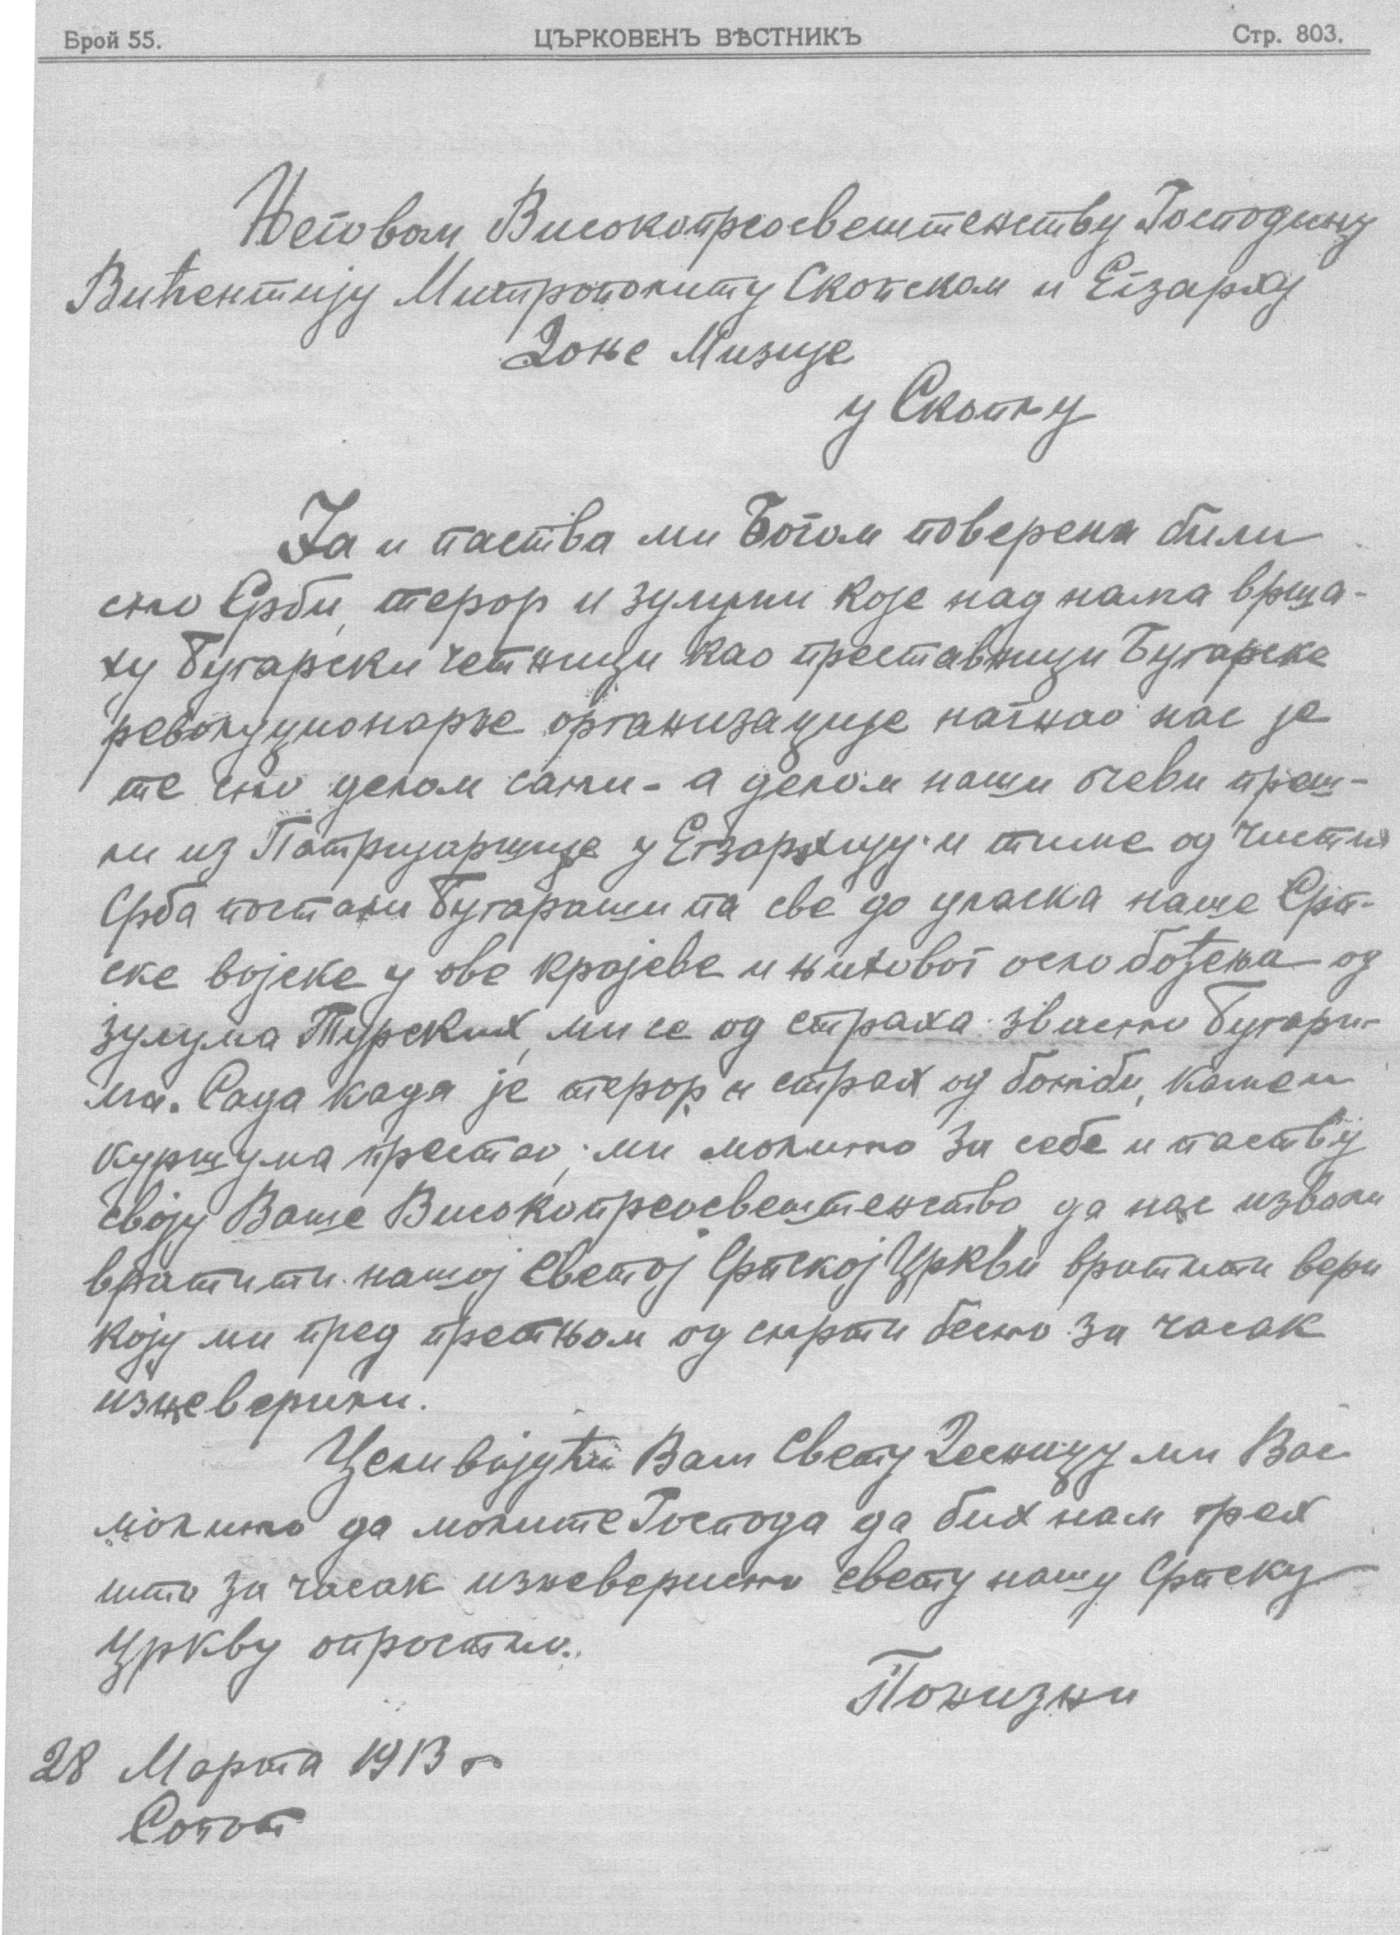 Брой 55. ЦЪРКОВЕНЪ ВѢСТНИКЪ Стр. 803.
Његовом Високопреосвештенству Господину
Вићентију Митрополиту Скопском и Егзарху
Доње Мизије
у Скопљу
Ја и паства ми Богом поверена били
смо Срби, терор и зулуми које над нама врша-
ху бугарски четници као преставници Бугарске
револуционарне организације нагнао нас је
те смо делом сами - а делом наши очеви преш-
ли из Патријаршије у Егзархију и тиме од чистих
Срба постали Бугараши па све до уласка наше Срп-
ске војске у ове крајеве и њиховог ослобођења од
зулума Турских, ми се од страха звасмо Бугари-
ма. Сада када је терор и страх од бомби, каме и
куршума престао, ми молимо за себе и паству
своју Ваше Високопреосвештенство да нас изволи
вратити нашој светој Српској Цркви вратити вери
коју ми пред претњом од смрти бесмо за часак
изневерили.
Целивајући Вам Свету Десницу ми Вас
молимо да молите Господа да бих нам грех
што за часак изневерисмо свету нашу Српску
Цркву опростио.
Понизни
28 Марта 1913 г
Сопот